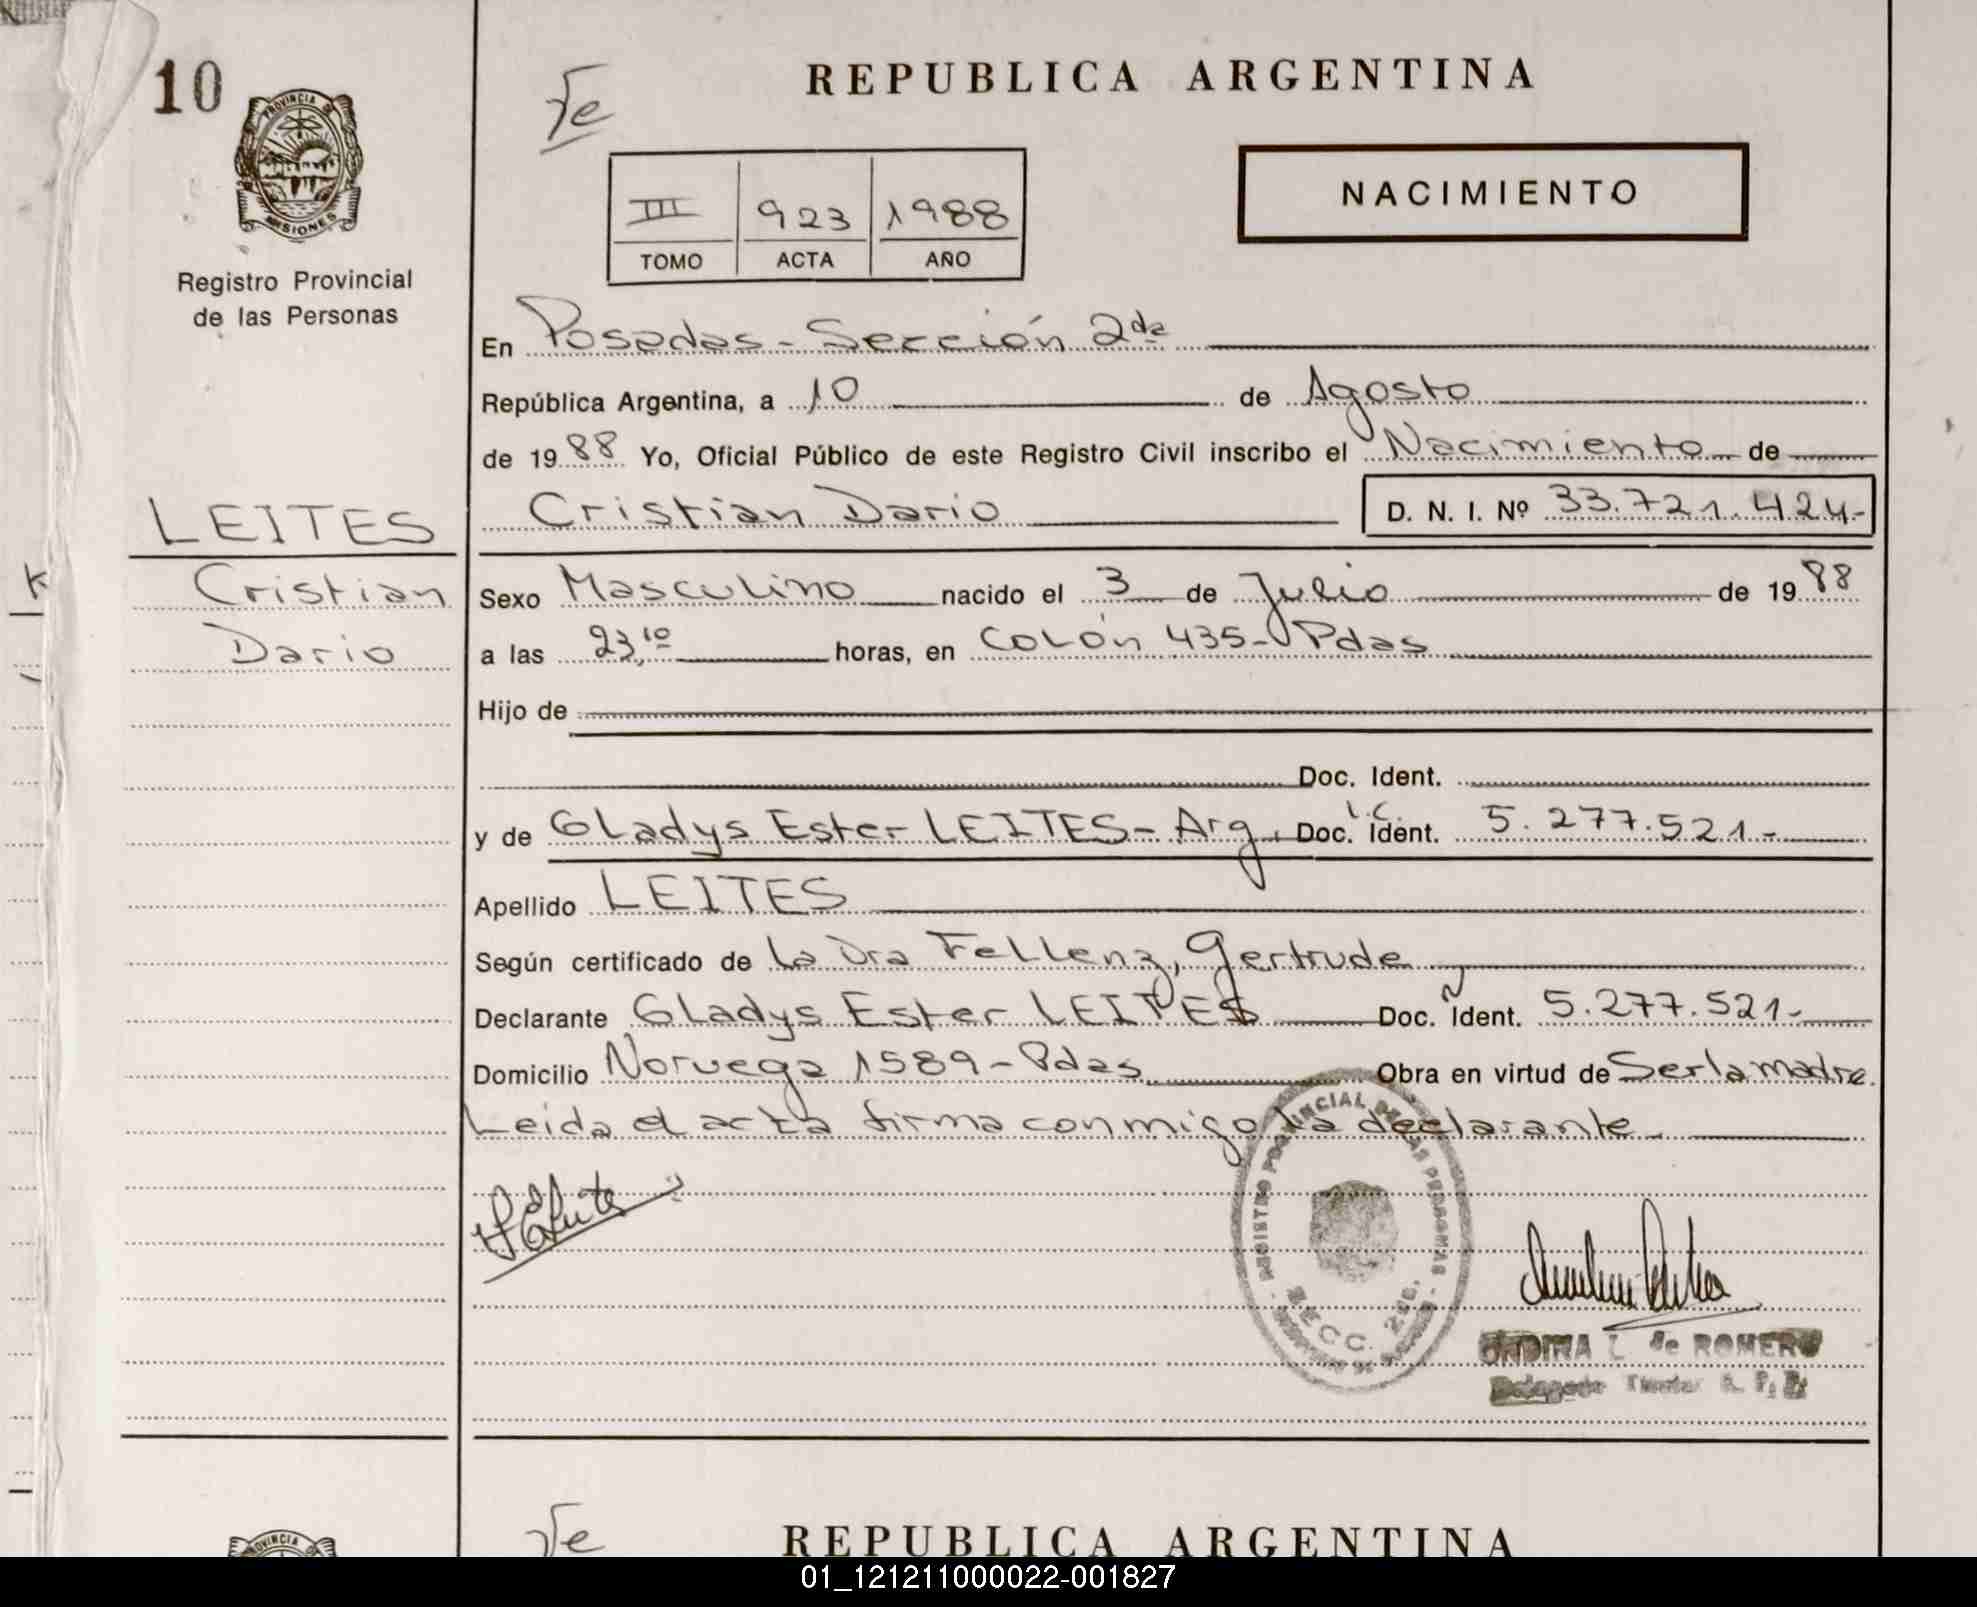 10
REPUBLICA ARGENTINA
PROVINCIA DE
MISIONES
Registro Provincial
de las Personas
III 923 1988
TOMO ACTA AÑO
NACIMIENTO
En Posadas - Sección 2da
República Argentina, a 10 de Agosto
de 1988 Yo, Oficial Público de este Registro Civil inscribo el Nacimiento de
Cristian Dario D. N. I. Nº 33.721.424-
LEITES
Cristian
Dario
Sexo Masculino nacido el 3 de Julio de 1988
a las 23,10 horas, en Colón 435- Pdas
Hijo de
Doc. Ident.
y de Gladys Ester LEITES - Arg. Doc. Ident. 5.277.521.-
Apellido LEITES
Según certificado de la Dra Fellenz, Gertrude
Declarante Gladys Ester LEITES Doc. Ident. 5.277.521-
Domicilio Noruega 1589 - Pdas Obra en virtud de Ser la madre.
Leida el acta firma conmigo la declarante
REGISTRO PROVINCIAL DE LAS PERSONAS
SECC. 2da.
ONDINA L. de ROMERO
REPUBLICA ARGENTINA
01_121211000022-001827